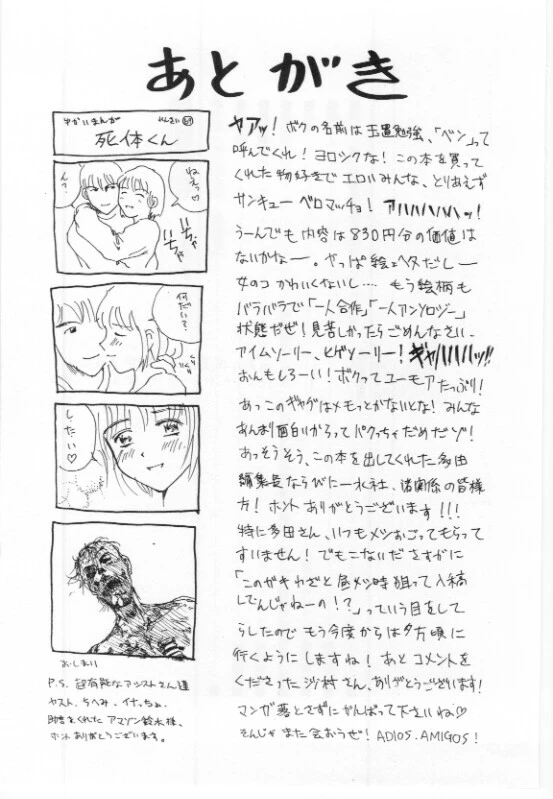 あとがき
ゆかいまんが
死体くん
ねぇ♡
ん？
いちゃ
いちゃ
何だい？
したい♡
おしまい
P.S. 超有能なアシストさん達
ヤスト、ちへみ、イナっちょ、
助言をくれた アマゾン鈴木様、
ホント ありがとうございます。
ヤアッ! ボクの名前は玉置勉強、「ベン」って
呼んでくれ! ヨロシクな! この本を買って
くれた物好きでエロいみんな、とりあえず
サンキュー ベロマッチョ! アハハハハハッ!
うーんでも内容は830円分の価値は
ないかなー。やっぱ絵もヘタだしー
女のコ かわいくないし…… もう絵柄も
バラバラで「一人合作」「一人アンソロジー」
状態だぜ! 見苦しかったらごめんなさい。
アイムソーリー、ヒゲソーリー! ギャハハハハッ!!
おんもしろーい! ボクってユーモアたっぷり!
あっこのギャグはメモっとかないとな! みんな
あんまり面白いからってパクっちゃだめだゾ!
あっそうそう、この本を出してくれた多田
編集長ならびに一水社、諸関係の皆様
方! ホント ありがとうございます!!!
特に多田さん、いつもメシおごってもらって
すいません! でもこないださすがに
「このガキわざと昼メシ時狙って入稿
してんじゃねーの!?」っていう目をして
らしたので もう今度からは夕方頃に
行くようにしますね! あとコメントを
くださった沙村さん、ありがとうございます!
マンガ落とさずにがんばって下さいね♡
そんじゃ また会おうぜ! ADIOS.AMIGOS!